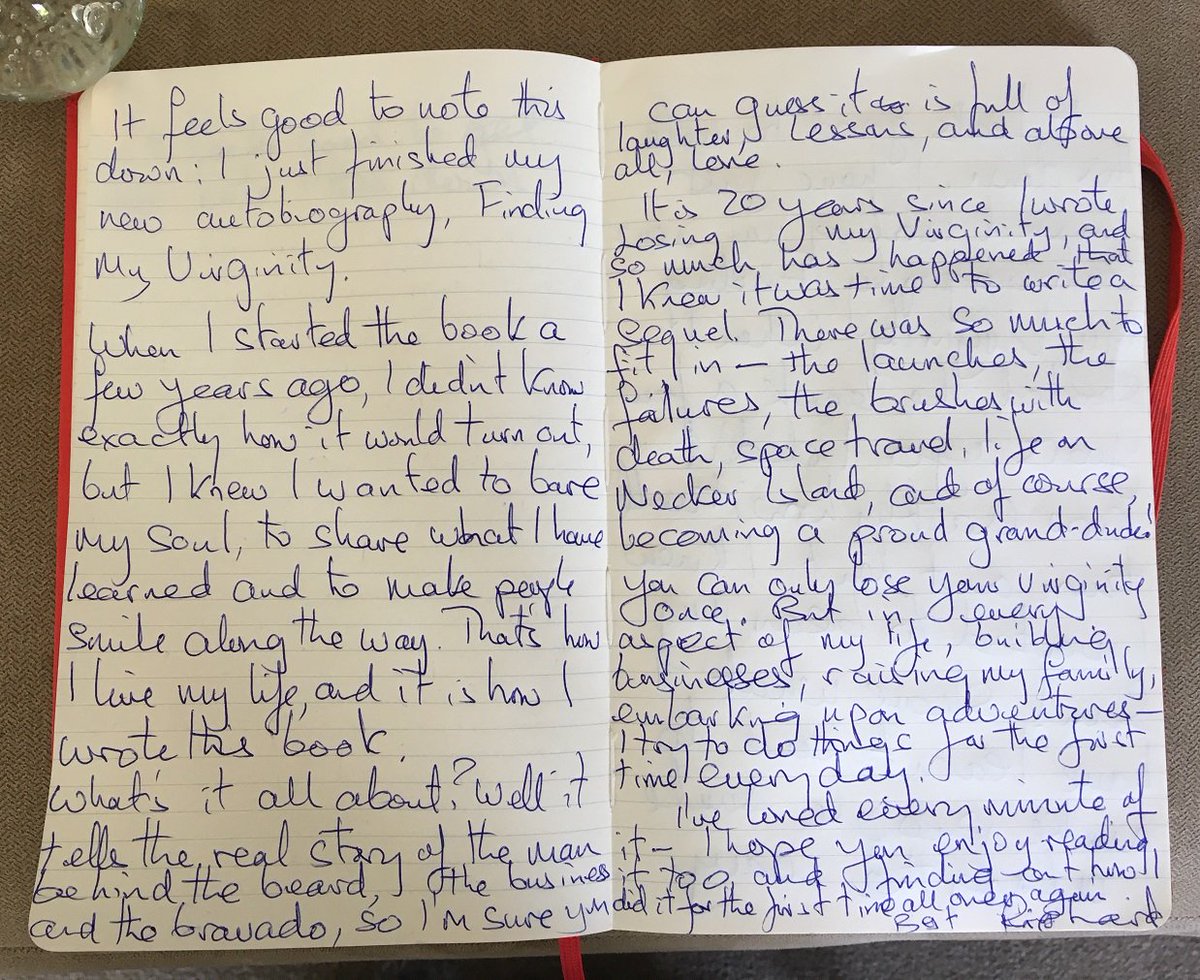 It feels good to note this
down: I just finished my
new autobiography, Finding
My Virginity.
When I started the book a
few years ago, I didn't know
exactly how it would turn out,
but I knew I wanted to bare
my soul, to share what I have
learned and to make people
smile along the way. That's how
I live my life, and it is how I
wrote this book.
What's it all about? Well it
tells the real story of the man
behind the beard, the business
and the bravado, so I'm sure you
can guess it is full of
laughter, lessons, and above
all, love.
It is 20 years since I wrote
Losing my Virginity, and
so much has happened that
I knew it was time to write a
sequel. There was so much to
fit in – the launches, the
failures, the brushes with
death, space travel, life on
Necker Island, and of course,
becoming a proud grand-dude!
You can only lose your virginity
once. But in every
aspect of my life, building
businesses, raising my family,
embarking upon adventures –
I try to do things for the first
time every day.
I've loved every minute of
it – I hope you enjoy reading
it too and finding out how I
did it for the first time all over again
Best Richard